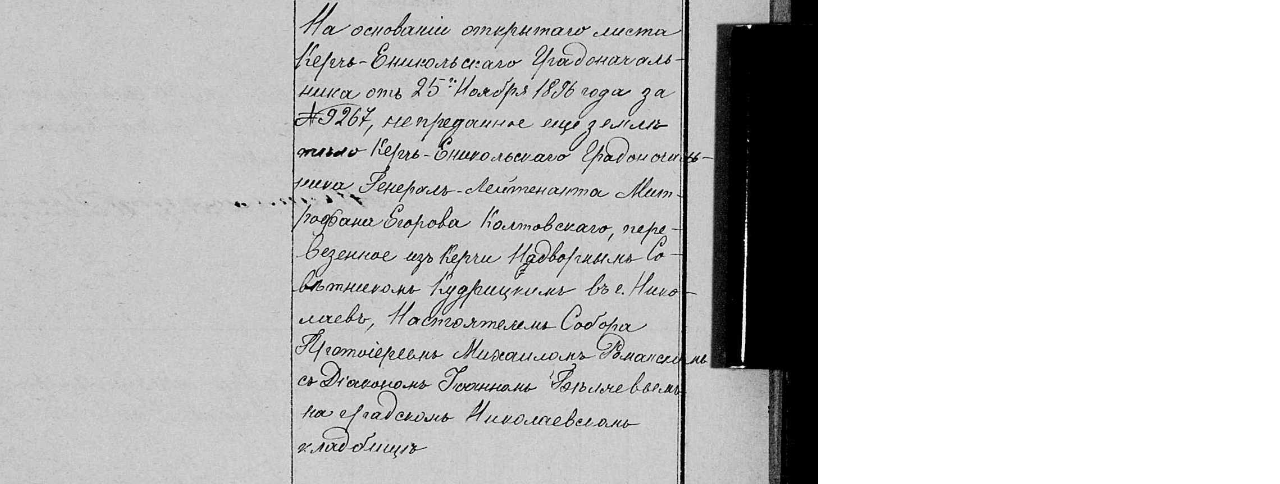 На основаніи открытаго листа
Керчь-Еникольскаго Градоначаль-
ника отъ 25го Ноября 1896 года за
№9267, непреданное еще землѣ
тѣло Керчь-Еникольскаго Градоначаль-
ника Генералъ-Лейтенанта Мит-
рофана Егорова Колтовскаго, пере-
везенное изъ Керчи Надворнымъ Со-
вѣтникомъ Кудрицкимъ въ г. Нико-
лаевъ, Настоятелемъ Собора
Протоіереемъ Михаиломъ
съ Діакономъ Іоанномъ
на градскомъ Николаевскомъ
кладбищѣ